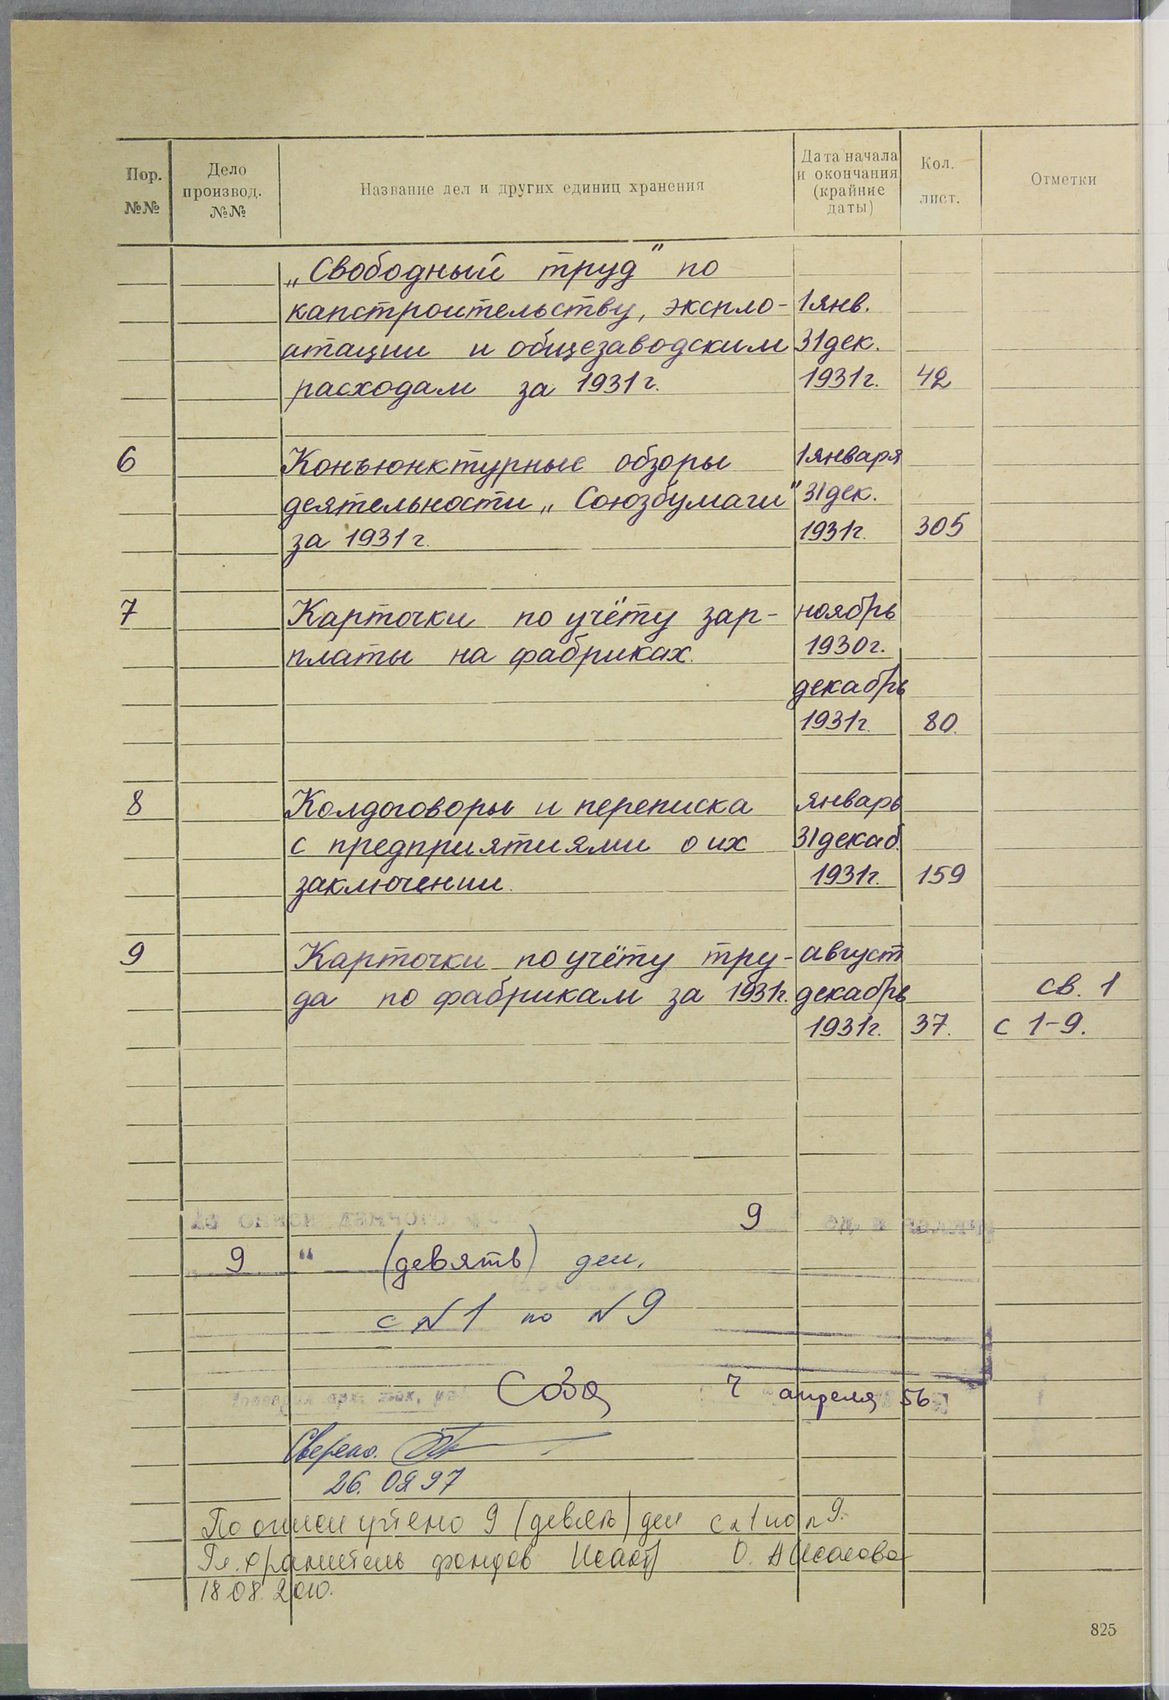 Пор. №№
Дело производ. №№
Название дел и других единиц хранения
Дата начала и окончания (крайние даты)
Кол. лист.
Отметки
„Свободный труд" по
капстроительству, экспло- 1 янв.
атации и общезаводским 31 дек.
расходам за 1931 г. 1931 г. 42
6 Конъюнктурные обзоры 1 января
деятельности „Союзбумаги" 31 дек.
за 1931 г. 1931 г. 305
7 Карточки по учёту зар- ноябрь
платы на фабриках. 1930 г.
декабрь
1931 г. 80.
8 Колдоговоры и переписка январь
с предприятиями о их 31 декаб.
заключении. 1931 г. 159
9 Карточки по учёту тру- август
да по фабрикам за 1931 г. декабрь св. 1
1931 г. 37. с 1-9.
9
9 " (девять) дел,
с №1 по №9
7 апреля 56
Сверено.
26.09 97
По описи учтено 9 (девять) дел с №1 по №9.
Гл. хранитель фондов О. А Исакова
18.08.2010.
825